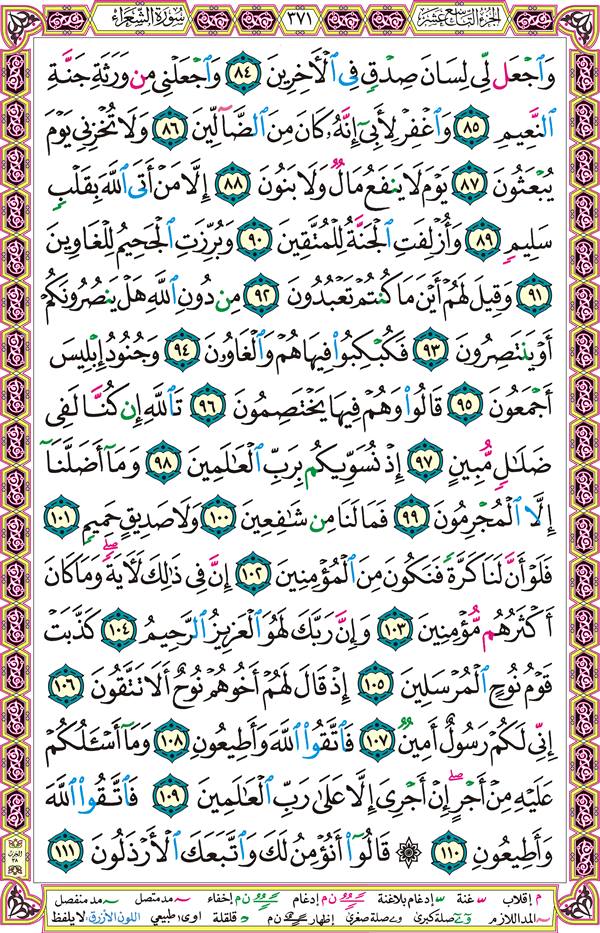 الجزء التاسع عشر ٣٧١ سورة الشعراء
وَاجْعَل لِّي لِسَانَ صِدْقٍ فِي الْآخِرِينَ ٨٤ وَاجْعَلْنِي مِن وَرَثَةِ جَنَّةِ
النَّعِيمِ ٨٥ وَاغْفِرْ لِأَبِي إِنَّهُ كَانَ مِنَ الضَّالِّينَ ٨٦ وَلَا تُخْزِنِي يَوْمَ
يُبْعَثُونَ ٨٧ يَوْمَ لَا يَنفَعُ مَالٌ وَلَا بَنُونَ ٨٨ إِلَّا مَنْ أَتَى اللَّهَ بِقَلْبٍ
سَلِيمٍ ٨٩ وَأُزْلِفَتِ الْجَنَّةُ لِلْمُتَّقِينَ ٩٠ وَبُرِّزَتِ الْجَحِيمُ لِلْغَاوِينَ
٩١ وَقِيلَ لَهُمْ أَيْنَ مَا كُنتُمْ تَعْبُدُونَ ٩٢ مِن دُونِ اللَّهِ هَلْ يَنصُرُونَكُمْ
أَوْ يَنتَصِرُونَ ٩٣ فَكُبْكِبُوا فِيهَا هُمْ وَالْغَاوُونَ ٩٤ وَجُنُودُ إِبْلِيسَ
أَجْمَعُونَ ٩٥ قَالُوا وَهُمْ فِيهَا يَخْتَصِمُونَ ٩٦ تَاللَّهِ إِن كُنَّا لَفِي
ضَلَالٍ مُّبِينٍ ٩٧ إِذْ نُسَوِّيكُم بِرَبِّ الْعَالَمِينَ ٩٨ وَمَا أَضَلَّنَا
إِلَّا الْمُجْرِمُونَ ٩٩ فَمَا لَنَا مِن شَافِعِينَ ١٠٠ وَلَا صَدِيقٍ حَمِيمٍ ١٠١
فَلَوْ أَنَّ لَنَا كَرَّةً فَنَكُونَ مِنَ الْمُؤْمِنِينَ ١٠٢ إِنَّ فِي ذَٰلِكَ لَآيَةً ۖ وَمَا كَانَ
أَكْثَرُهُم مُّؤْمِنِينَ ١٠٣ وَإِنَّ رَبَّكَ لَهُوَ الْعَزِيزُ الرَّحِيمُ ١٠٤ كَذَّبَتْ
قَوْمُ نُوحٍ الْمُرْسَلِينَ ١٠٥ إِذْ قَالَ لَهُمْ أَخُوهُمْ نُوحٌ أَلَا تَتَّقُونَ ١٠٦
إِنِّي لَكُمْ رَسُولٌ أَمِينٌ ١٠٧ فَاتَّقُوا اللَّهَ وَأَطِيعُونِ ١٠٨ وَمَا أَسْأَلُكُمْ
عَلَيْهِ مِنْ أَجْرٍ ۖ إِنْ أَجْرِيَ إِلَّا عَلَىٰ رَبِّ الْعَالَمِينَ ١٠٩ فَاتَّقُوا اللَّهَ
وَأَطِيعُونِ ١١٠ ۞ قَالُوا أَنُؤْمِنُ لَكَ وَاتَّبَعَكَ الْأَرْذَلُونَ ١١١
الحزب
٣٨
م إقلاب س غنة س إدغام بلاغنة ن م إدغام ن م إخفاء ~ مد متصل ~ مد منفصل
~ المد اللازم و ے صلة كبرى و ے صلة صغرى إظهار ن م د قلقلة اوى: طبيعي اللون الأزرق: لا يلفظ